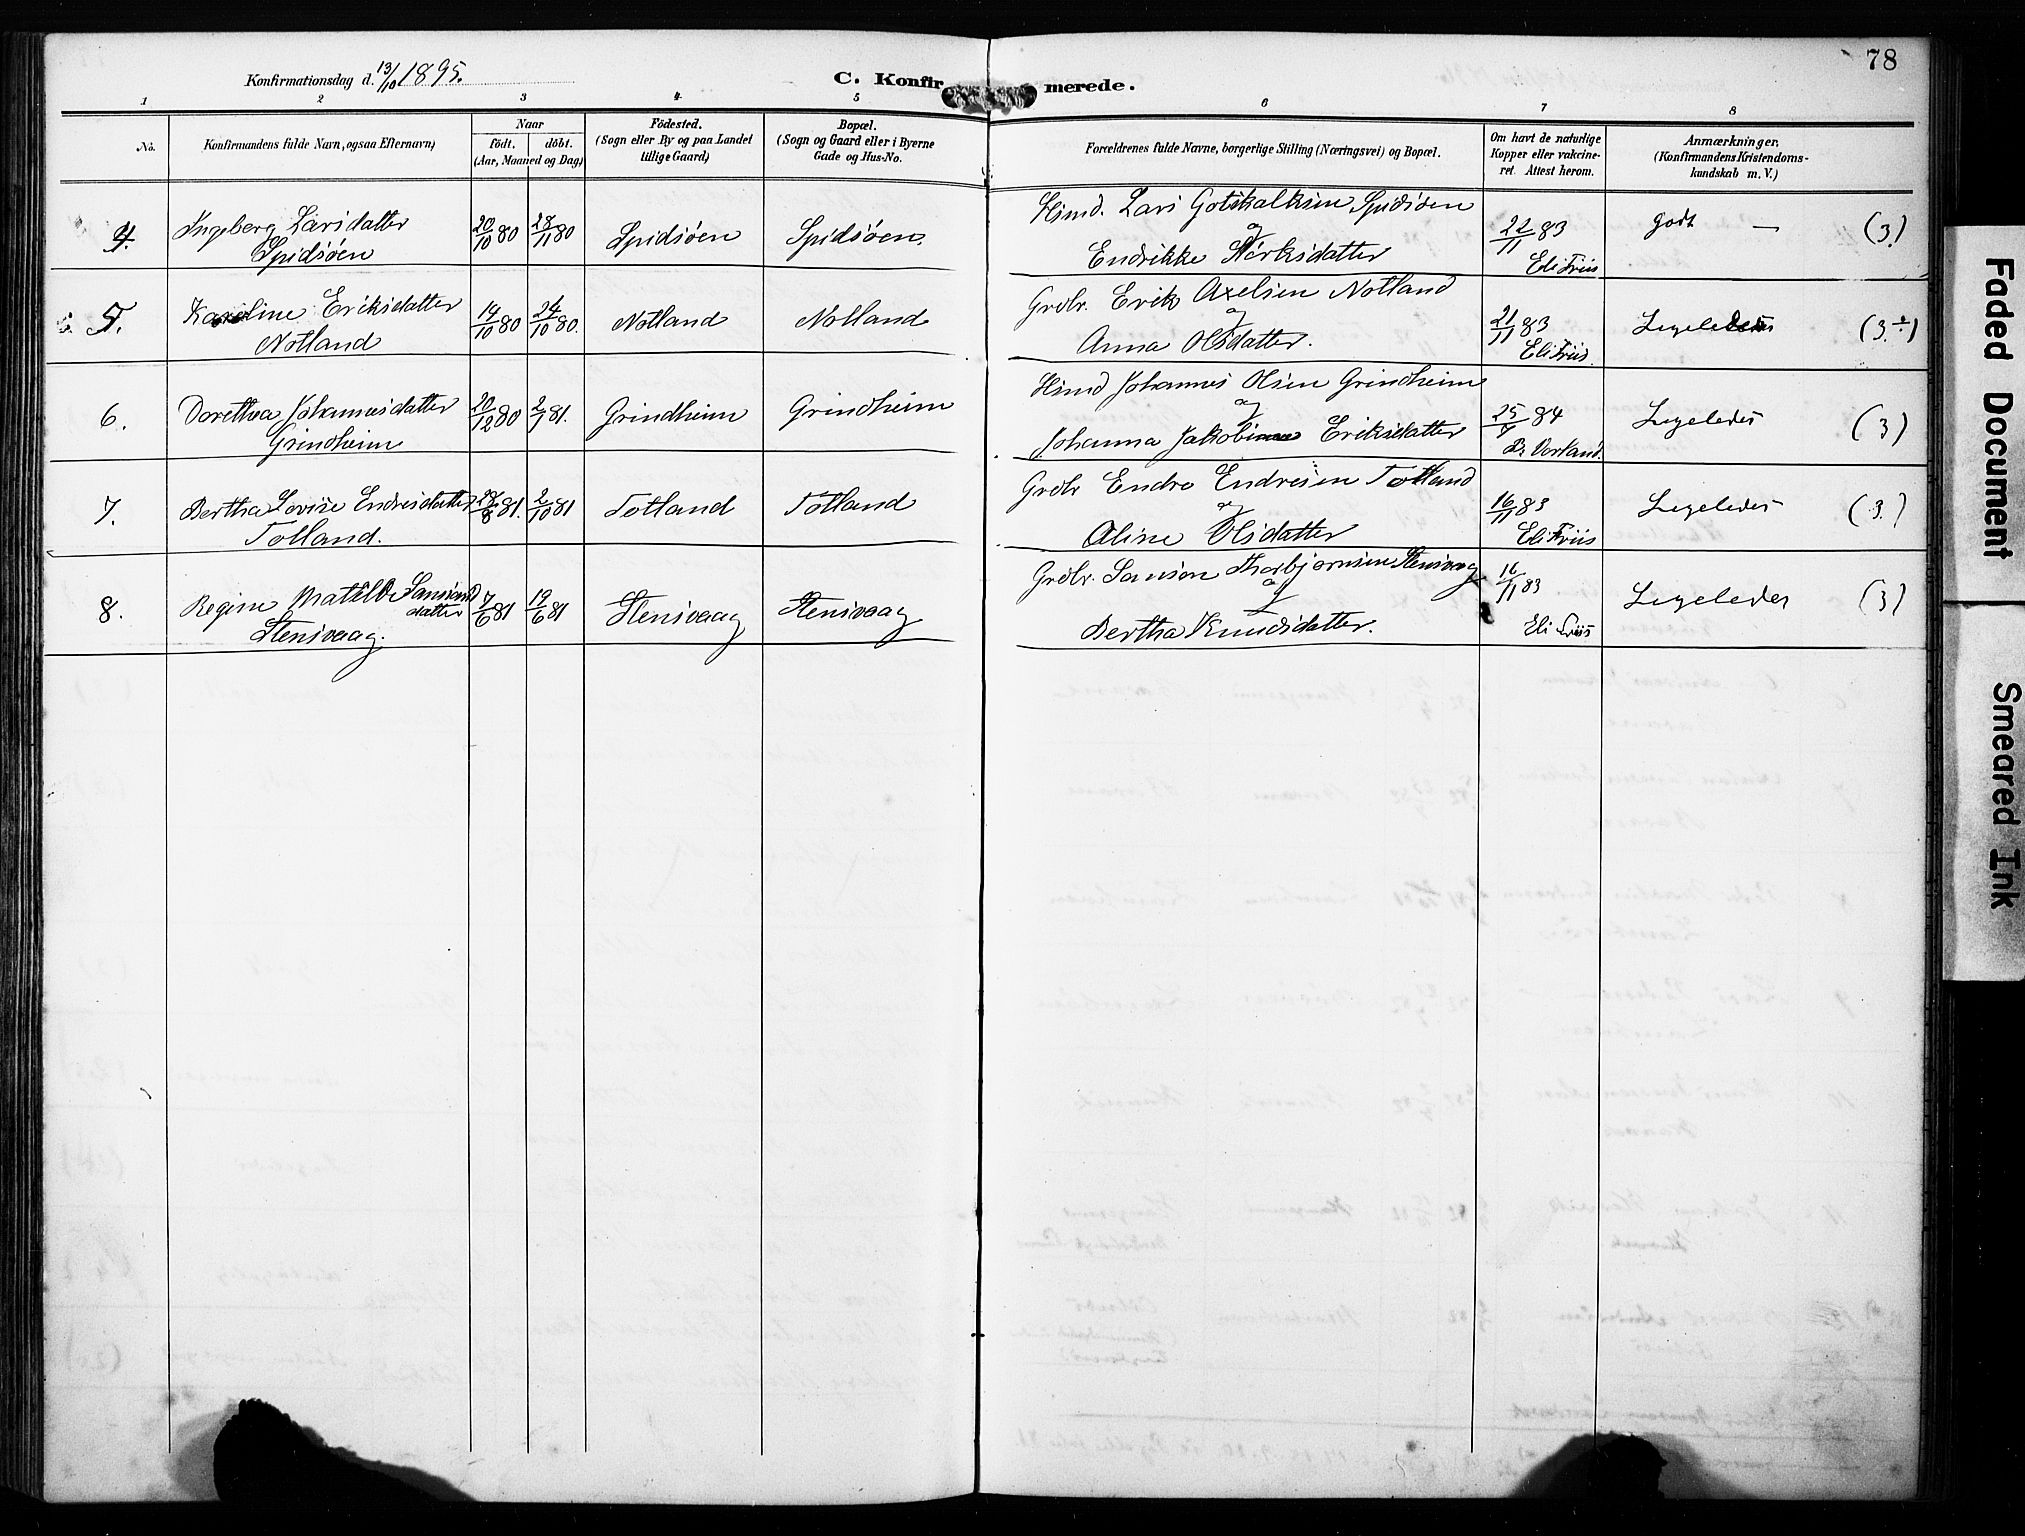 78
Konfirmationsdag d. 13/10 1895.
C. Konfirmerede.
1 2 3 4 5 6 7 8
No.
Konfirmandens fulde Navn, ogsaa Efternavn)
Naar
født. døbt.
(Aar, Maaned og Dag)
Fødested.
(Sogn eller By og paa Landet
tillige Gaard)
Bopæl.
(Sogn og Gaard eller i Byerne
Gade og Hus-No.
Forældrenes fulde Navne, borgerlige Stilling (Næringsvei) og Bopæl.
Om havt de naturlige
Kopper eller vakcine-
ret Attest herom.
Anmærkninger.
(Konfirmandens Kristendoms-
kundskab m. V.)
4. Ingeberg Larsdatter
Spidsøen
20/10 80 28/11 80 Spidsøen Spidsøen.
Hsmd. Lars Gotskalksen Spidsøen
og
Endrikke Størksdatter
22/11 83
Eli Friis
godt — (3)
5. Karoline Eriksdatter
Notland
14/10 80 24/10 80. Notland Notland
Grdbr. Erik Axelsen Notland
og
Anna Olsdatter.
21/11 83
Eli Friis.
Ligeledes (3 ÷)
6. Dorethea Johannesdatter
Grindheim
20/12 80 2/1 81. Grindheim Grindheim
Hsmd Johannes Olsen Grindheim
og
Johanna Jakobine Eriksdatter
25/7 84
B. Vorland.
Ligeledes (3)
7. Bertha Lovise Endresdatter
Totland.
28/8 81. 2/10 81 Totland Totland
Grdbr Endre Endresen Totland
og
Aline Olsdatter
16/11 83
Eli Friis
Ligeledes (3.)
8. Regine Matilde Samsons
datter
Stensvaag.
7/6 81 19/6 81 Stensvaag Stensvaag
Grdbr. Samson Thorbjørnsen Stensvaag
og
Bertha Knudsdatter.
16/11 83
Eli Friis
Ligeledes (3)
Faded Document
Smeared Ink